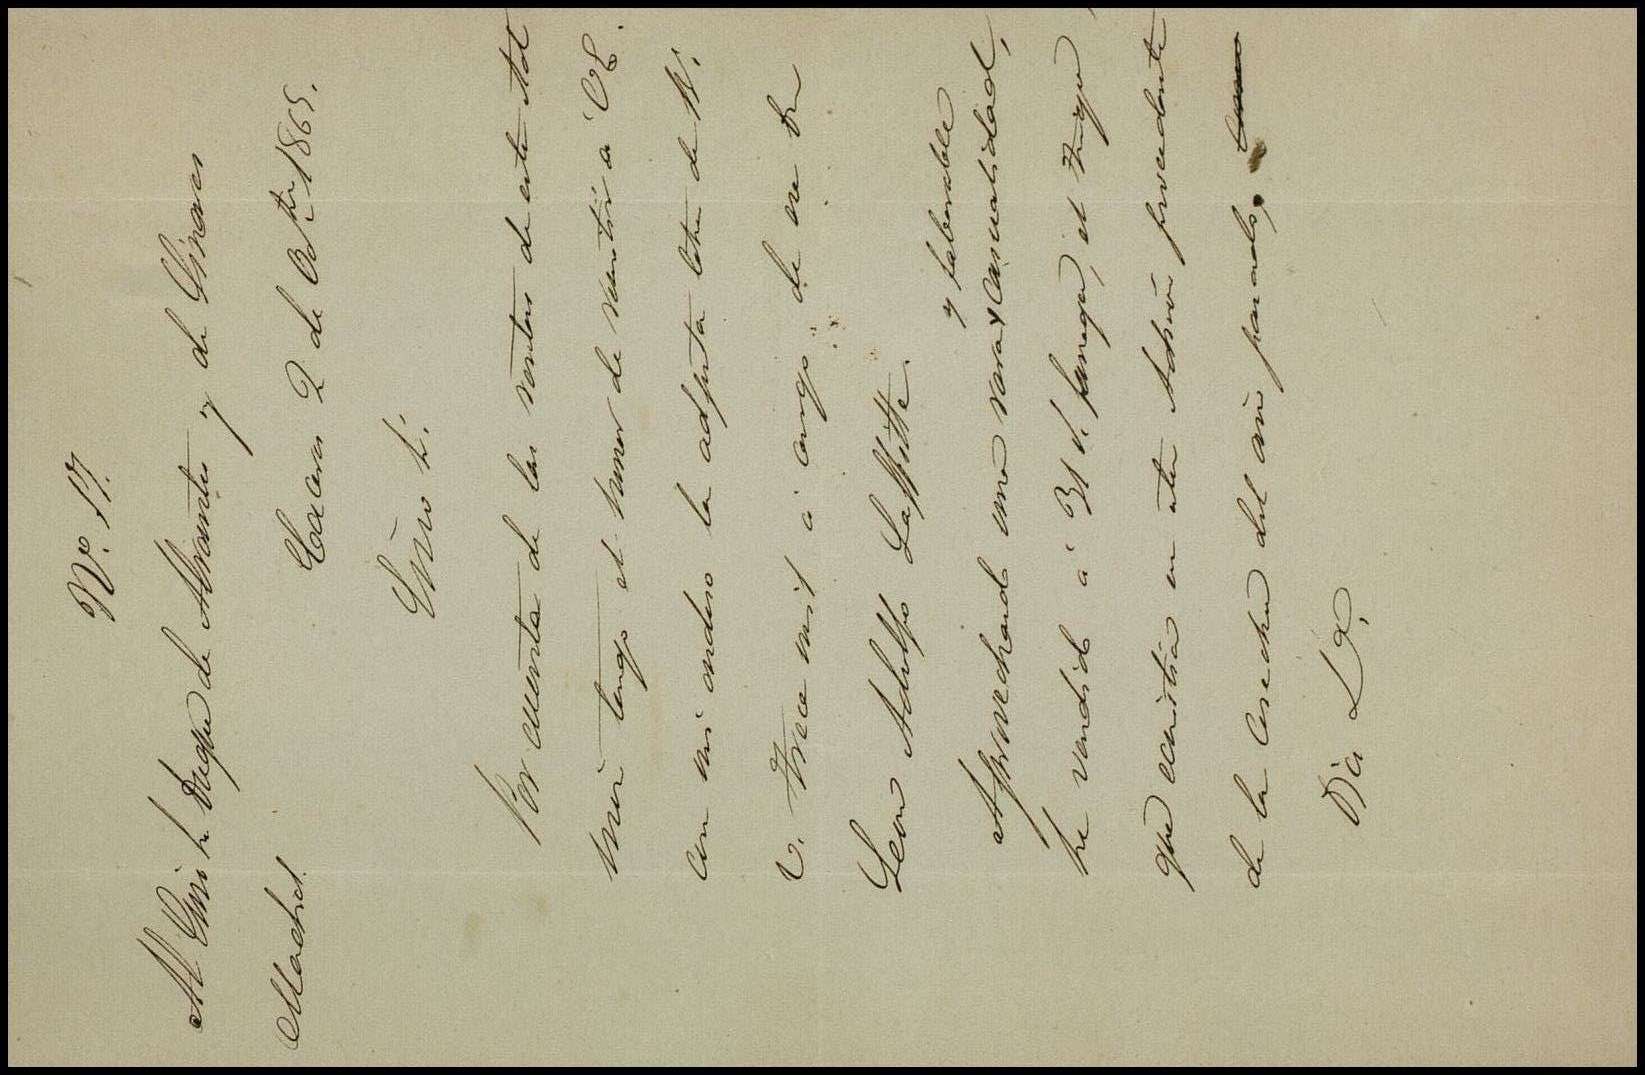 N.º 17.
Al Exmo Sr. Duque de Abrantes y de Linares
Madrid.
Cáceres 2 de Octbre 1865.
Exmo Sr.
Por cuenta de las ventas de esta Ad
mion tengo el honor de remitir a V. E.
con mi endoso la adjunta letra de R.
V. trece mil a cargo de ese Sr
Leon Adolfo Laffitte.
Aprovechando una rara y favorable casualidad,
he vendido a 31 r. fanega, el trigo
que existia en esta Admion procedente
de la cosecha del año pasado,
Dios